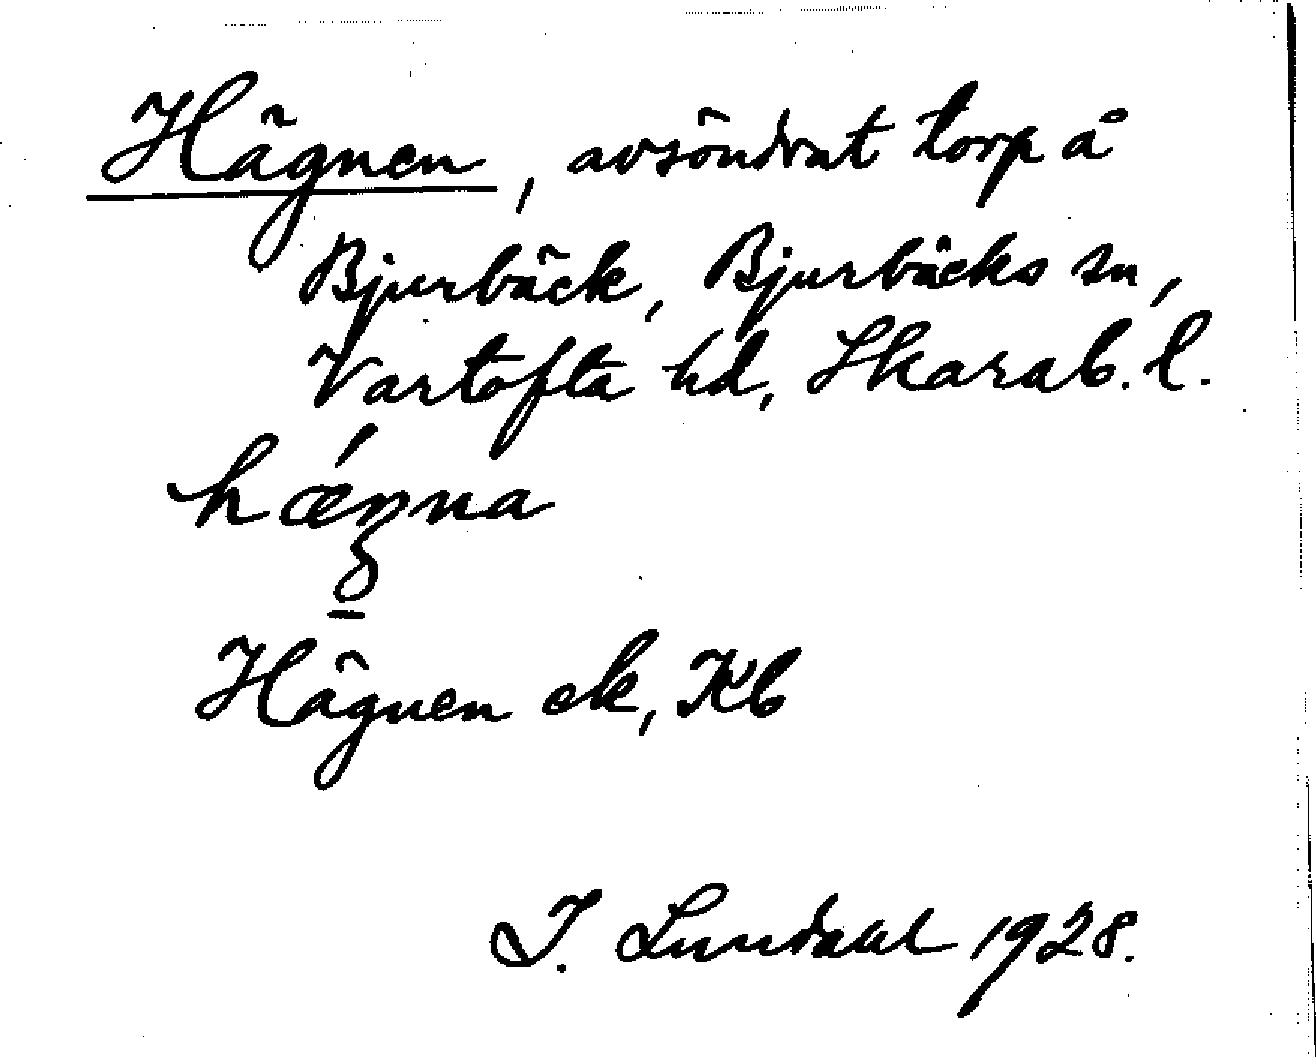 Hägnen, avsöndrat torp å
Bjurbäck, Bjurbäcks sn,
Vartofta hd, Skarab. l.
Hägnen ek, Kb
I. Lundahl 1928.